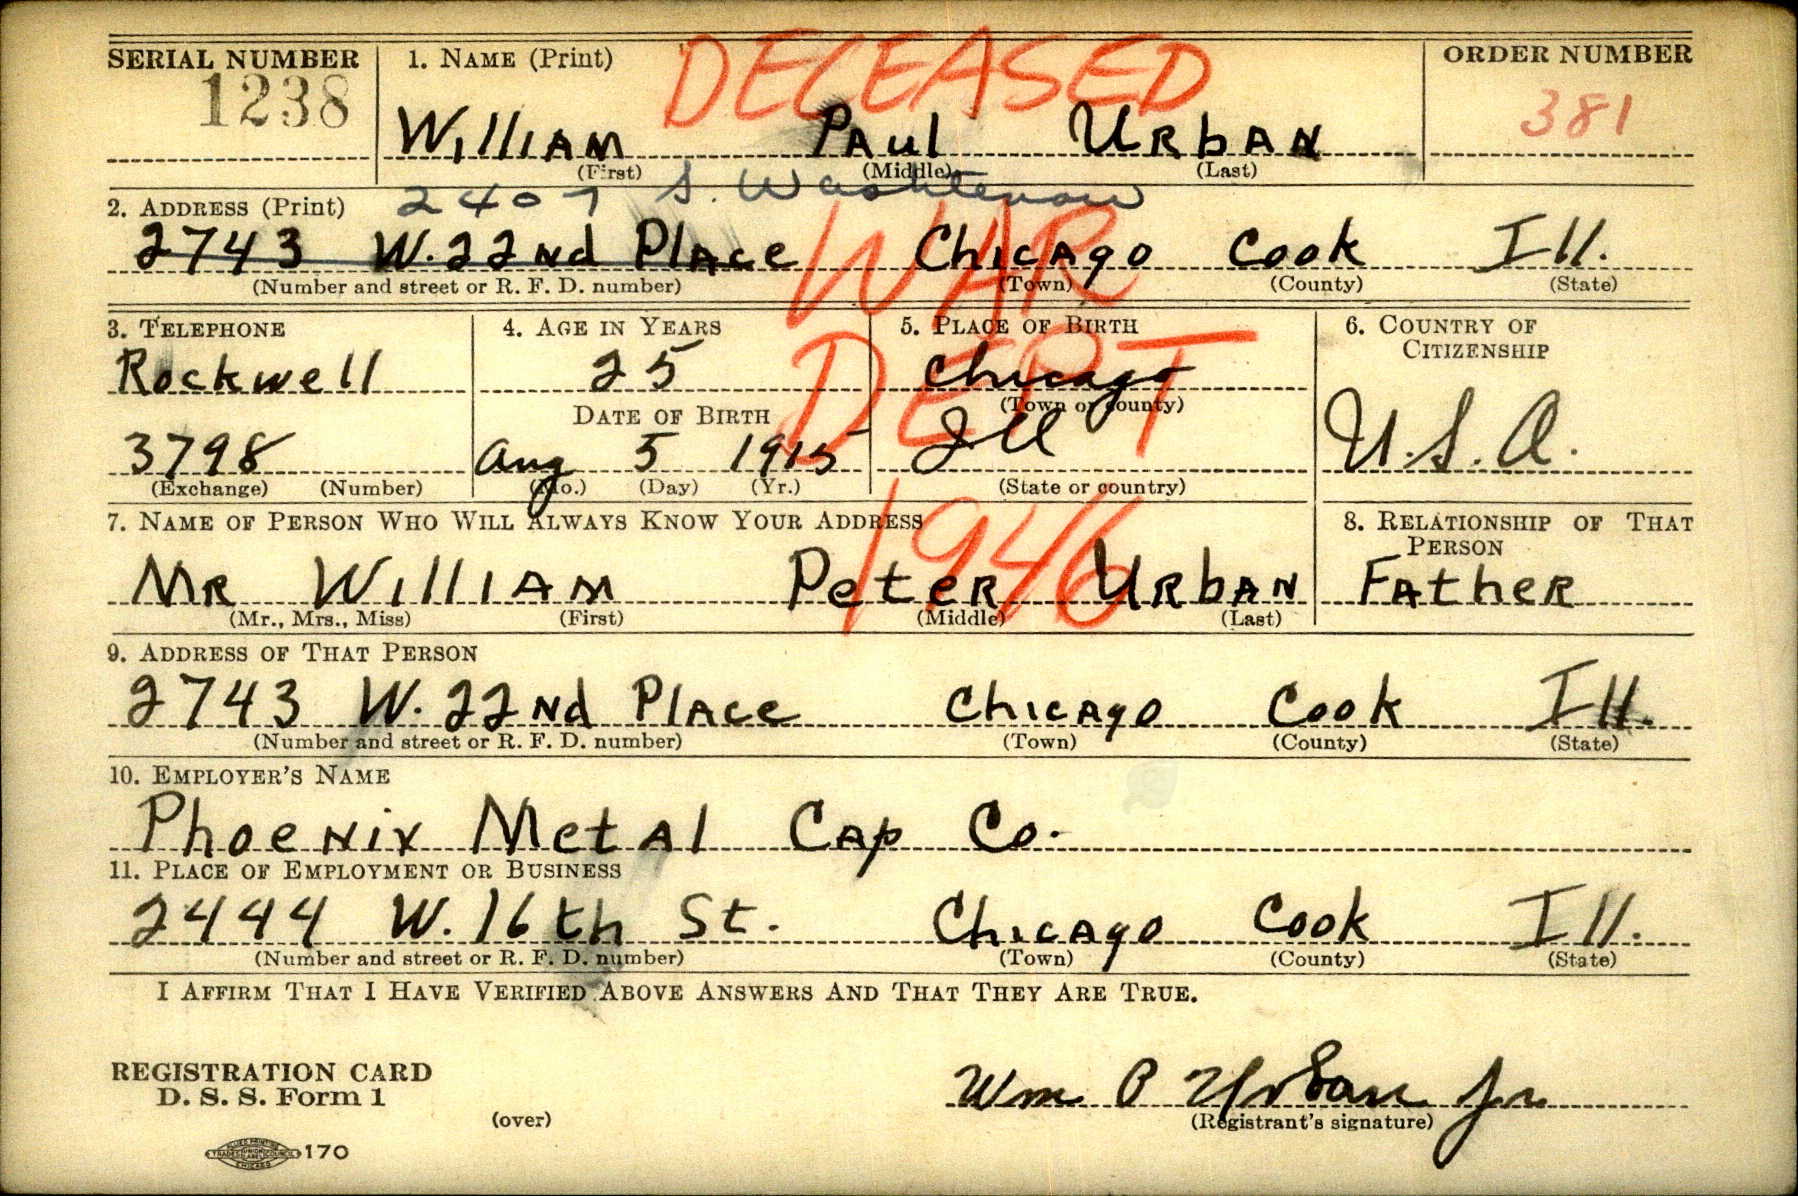 SERIAL NUMBER
1238
1. NAME (Print)
DECEASED
ORDER NUMBER
381
William Paul Urban
(First) (Middle) (Last)
2407 S. Washtenaw
2. ADDRESS (Print)
WAR
2743 W. 22nd Place Chicago Cook Ill.
(Number and street or R. F. D. number) (Town) (County) (State)
3. TELEPHONE
Rockwell
3798
(Exchange) (Number)
4. AGE IN YEARS
25
DATE OF BIRTH
Aug 5 1915
(Mo.) (Day) (Yr.)
DEPT
5. PLACE OF BIRTH
Chicago
(Town or county)
Ill
(State or country)
6. COUNTRY OF
CITIZENSHIP
U.S.A.
1946
7. NAME OF PERSON WHO WILL ALWAYS KNOW YOUR ADDRESS
Mr William Peter Urban
(Mr., Mrs., Miss) (First) (Middle) (Last)
8. RELATIONSHIP OF THAT
PERSON
Father
9. ADDRESS OF THAT PERSON
2743 W. 22nd Place Chicago Cook Ill.
(Number and street or R. F. D. number) (Town) (County) (State)
10. EMPLOYER'S NAME
Phoenix Metal Cap Co.
11. PLACE OF EMPLOYMENT OR BUSINESS
2444 W. 16th St. Chicago Cook Ill.
(Number and street or R. F. D. number) (Town) (County) (State)
I AFFIRM THAT I HAVE VERIFIED ABOVE ANSWERS AND THAT THEY ARE TRUE.
REGISTRATION CARD
D. S. S. Form 1
(over)
Wm P Urban Jr
(Registrant's signature)
ALLIED PRINTING
TRADES UNION LABEL COUNCIL
CHICAGO
170